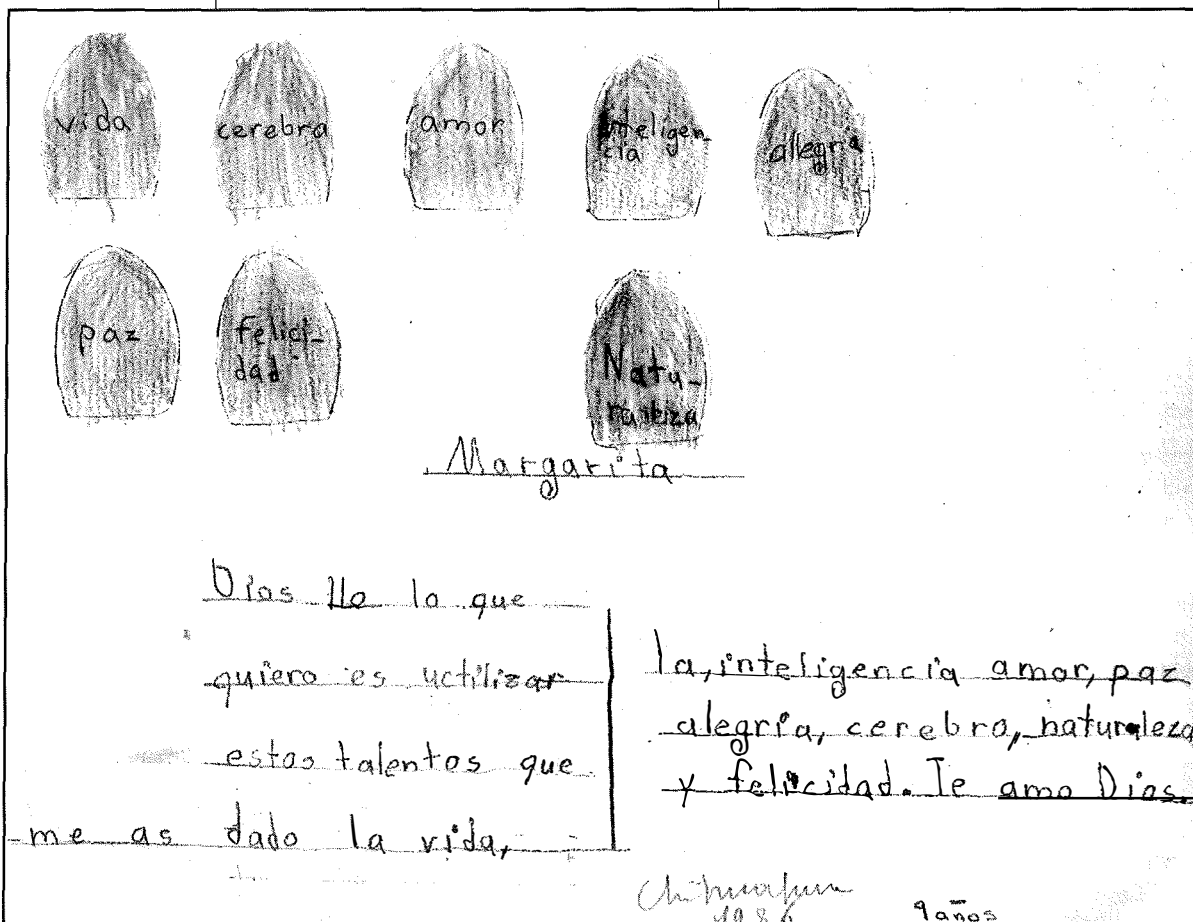 vida
cerebra
amor
inteligen-
cia
allegria
paz
felici-
dad
Natu-
raleza
Margarita
Dios llo lo que
quiero es uctilizar
estos talentos que
me as dado la vida,
la, inteligencia amor, paz
alegría, cerebro, naturaleza
y felicidad. Te amo Dios.
Chihuahua
1986
9 años